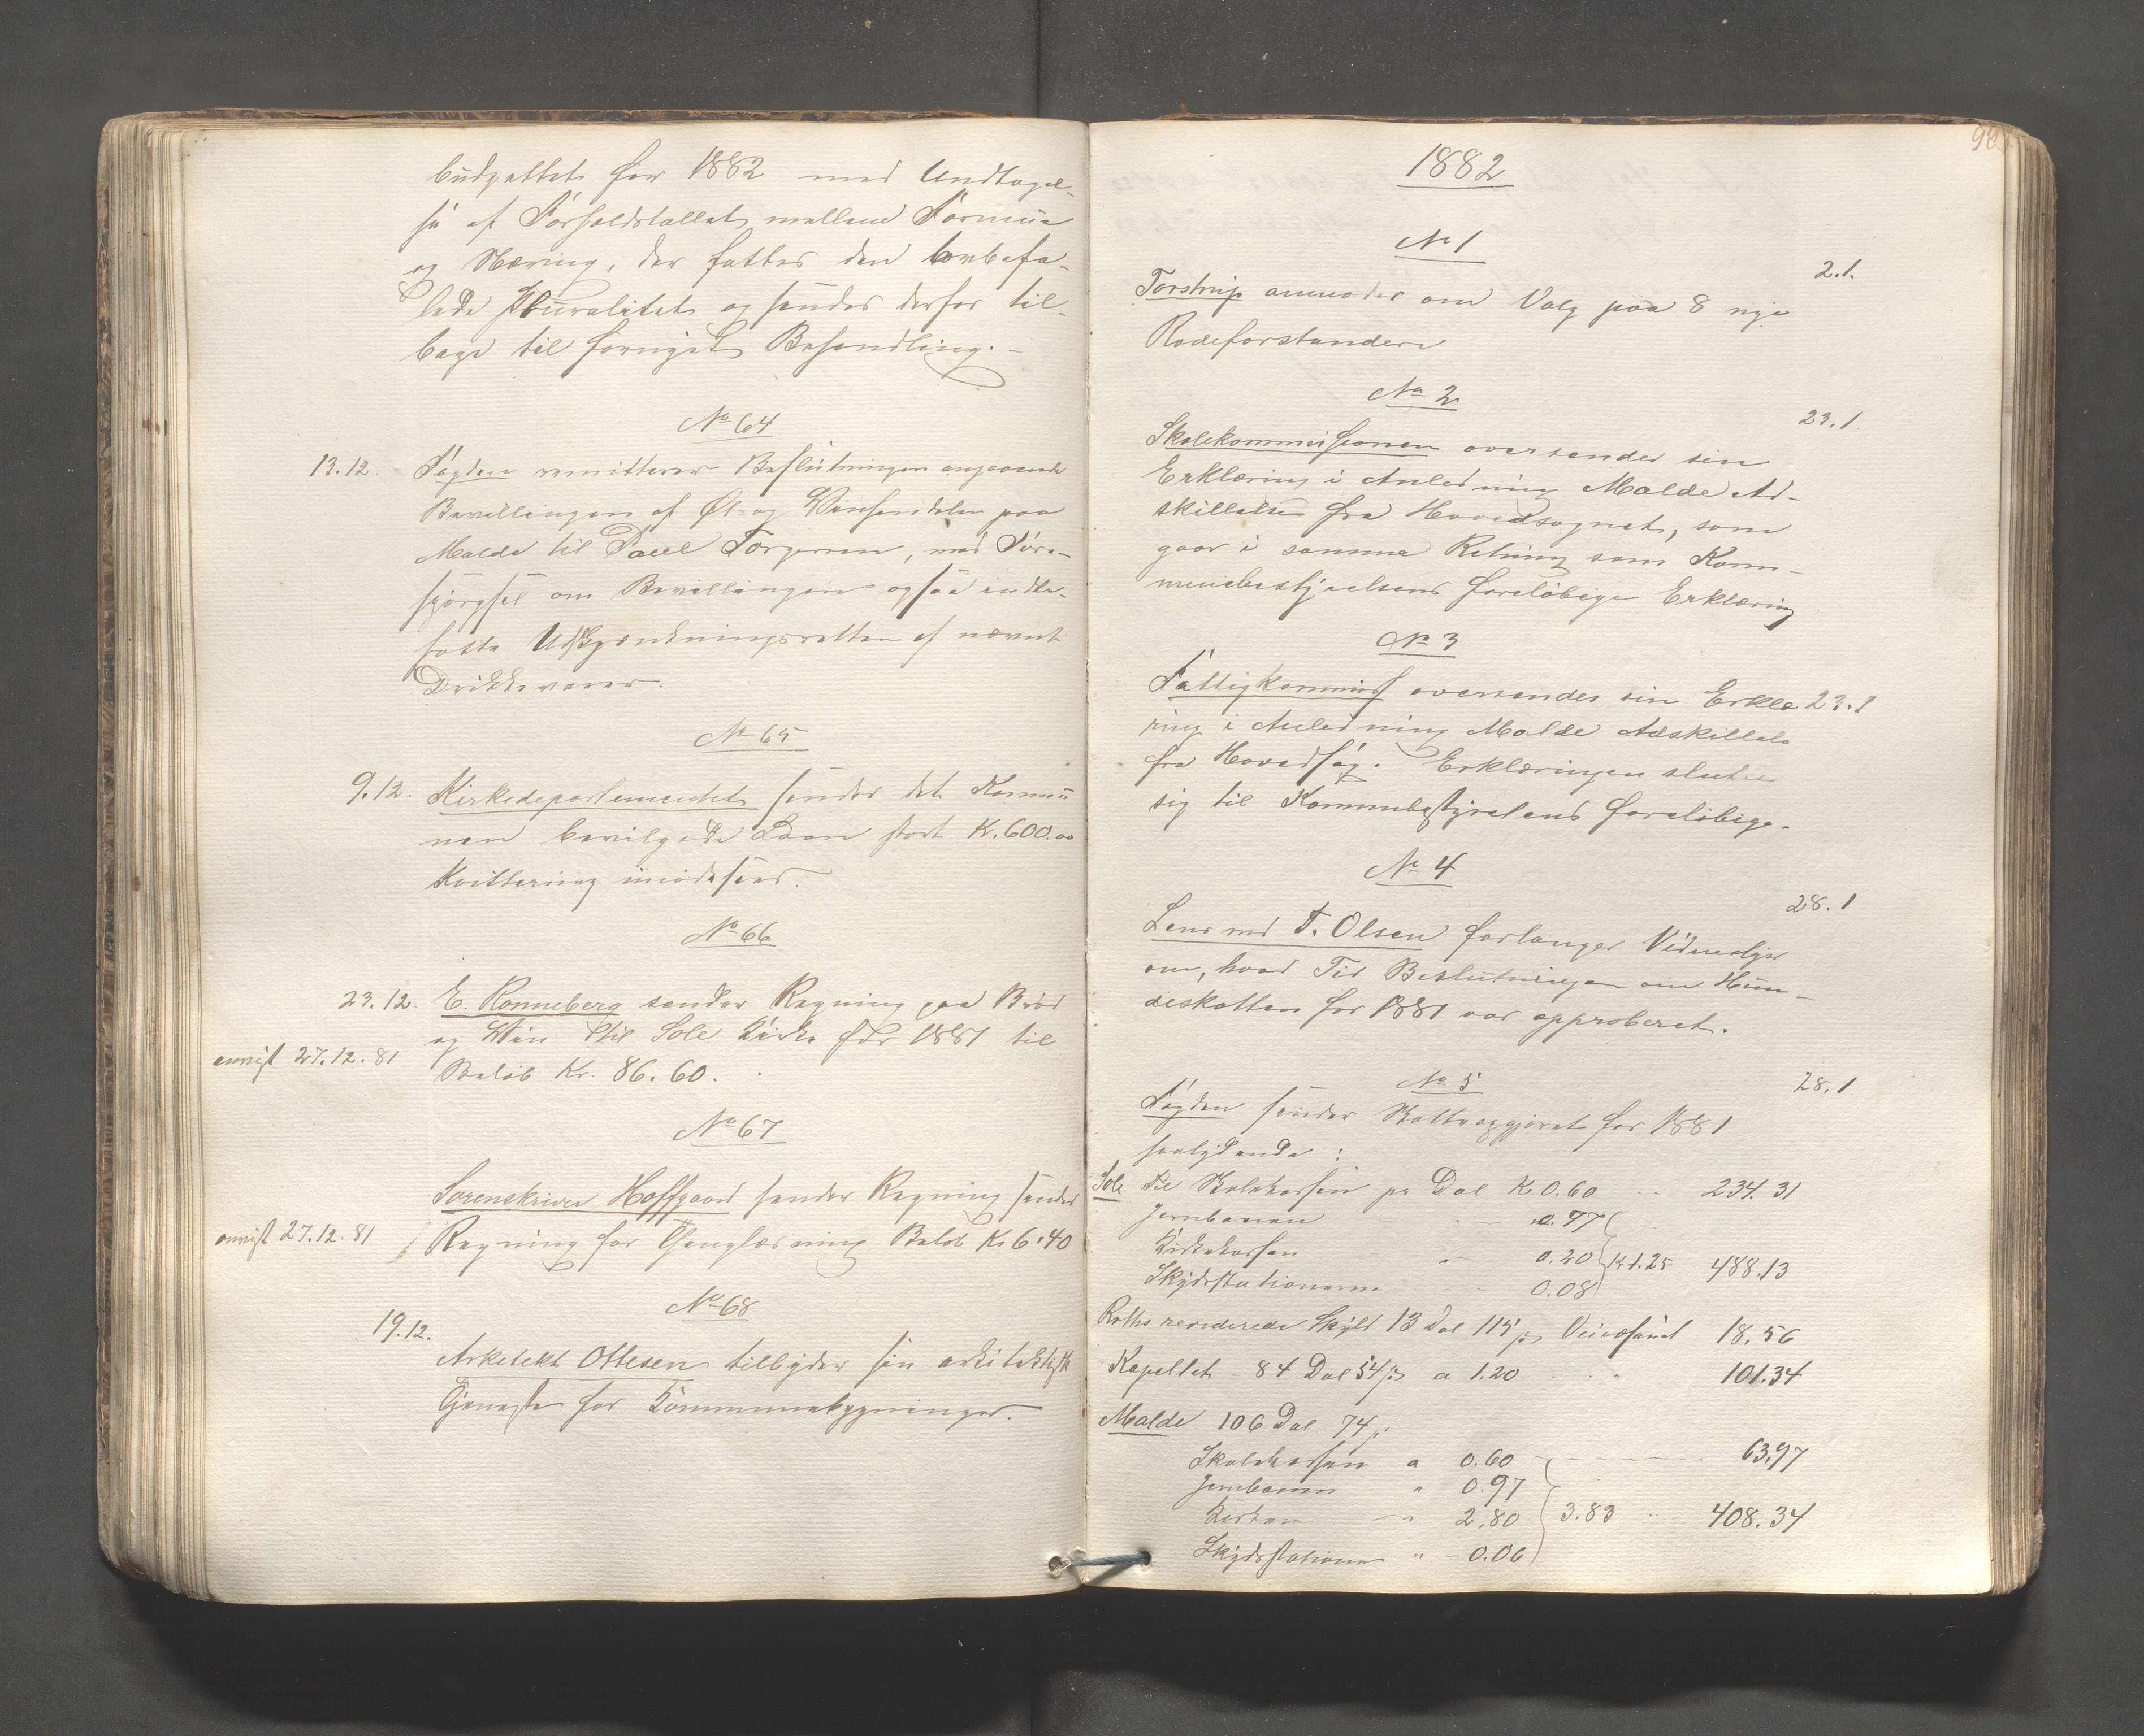 budgettet for 1882 med Undtagel-
se af Forholdstallet mellem Formue
og Næring, der fattes den lovbefa-
lede Pluralitet og sendes derfor til-
bage til fornyet Behandling. -
No 64
13.12. Fogden remitterer Beslutningen angaaende
Bevillingen af Øl- og Vinhandelen paa
Malde til Paul Torgersen, med Fore-
spørgsel om Bevillingen ogsaa indbe-
fatte Udskjænkningsretten af nævnt
Drikkevarer.
No 65
9.12. Kirkedepartementet sender det Kommu
nen bevilgede Laan stort Kr. 600.00
Kvittering imødesees.
No 66
23.12. E. Ronneberg sender Regning paa Brød
og Vin til Sole Kirke for 1881 til
anvist 27.12.81 Beløb Kr. 86.60.
No 67
Sorenskriver Hoffgaard sender Regning sender
anvist 27.12.81 Regning for Thinglæsning Beløb Kr 6.40
No 68
19.12.
Arkitekt Ottesen tilbyder sin arkitektisk
Tjeneste for Kommunebygninger.
98
1882
No 1
2.1.
Torstrup anmoder om Valg paa 8 nye
Rodeforstandere
No 2
23.1
Skolekommissionen oversender sin
Erklæring i Anledning Malde Ad-
skillelse fra Hovedsognet, som
gaar i samme Retning som Kom-
munebestyrelsens foreløbige Erklæring
No 3
Fattigkommiss oversender sin Erklæ 23.1
ring i Anledning Malde Adskillels
fra Hovedsog. Erklæringen slutter
sig til Kommubestyrelsens foreløbige.
No 4
28.1
Lensmd T. Olsen forlanger Vidnesbyr
om, hvad Tid Beslutningen om Hun-
deskatten for 1881 var approberet.
No 5
28.1
Fogden sender Skatteopgjøret for 1881
saalydende:
Sole til Skolekassen pr Dal Kr 0.60 234.31
Jernbanen " 0.77
Kirkekassen " 0.20 Kr 1.25 488.13
Skydsstationerne 0.08
Roths reviderede Skyld 13 Dal 115 18.56
Kapellet - 84 Dal 54 a 1.20 101.34
Malde 106 Dal 74
Skolekassen a 0.60 63.97
Jernbanen " 0.97
Kirken " 2.80 3.83 408.34
Skydsstationer " 0.06